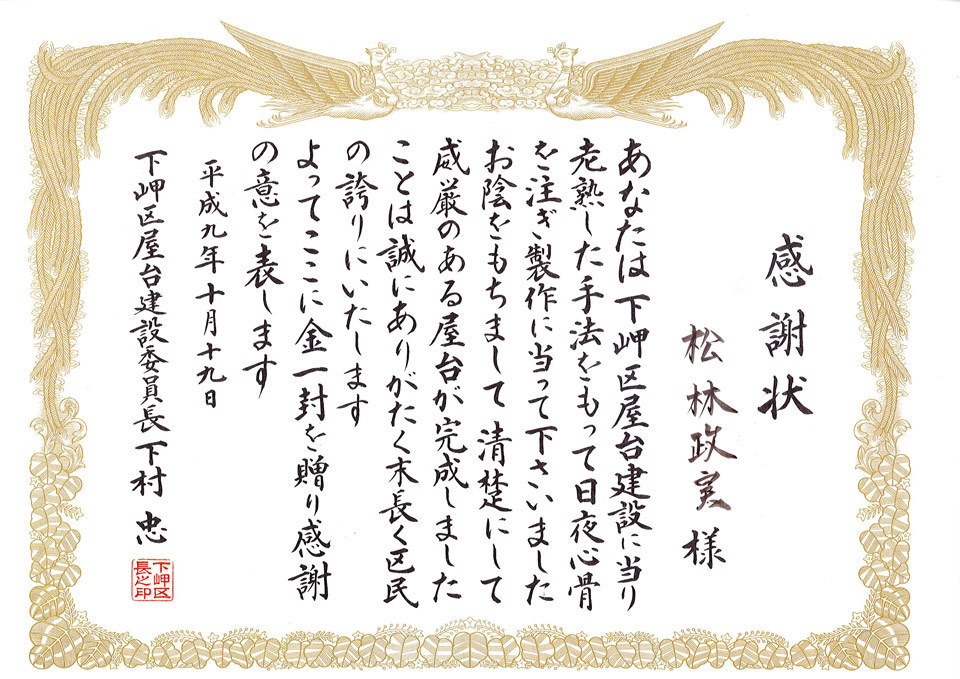 感謝状
松林政実様
あなたは下岬区屋台建設に当り
老熟した手法をもって日夜心骨
を注ぎ製作に当って下さいました
お陰をもちまして清楚にして
威厳のある屋台が完成しました
ことは誠にありがたく末長く区民
の誇りにいたします
よってここに金一封を贈り感謝
の意を表します
平成九年十月十九日
下岬区屋台建設委員長下村忠
下岬区
長之印